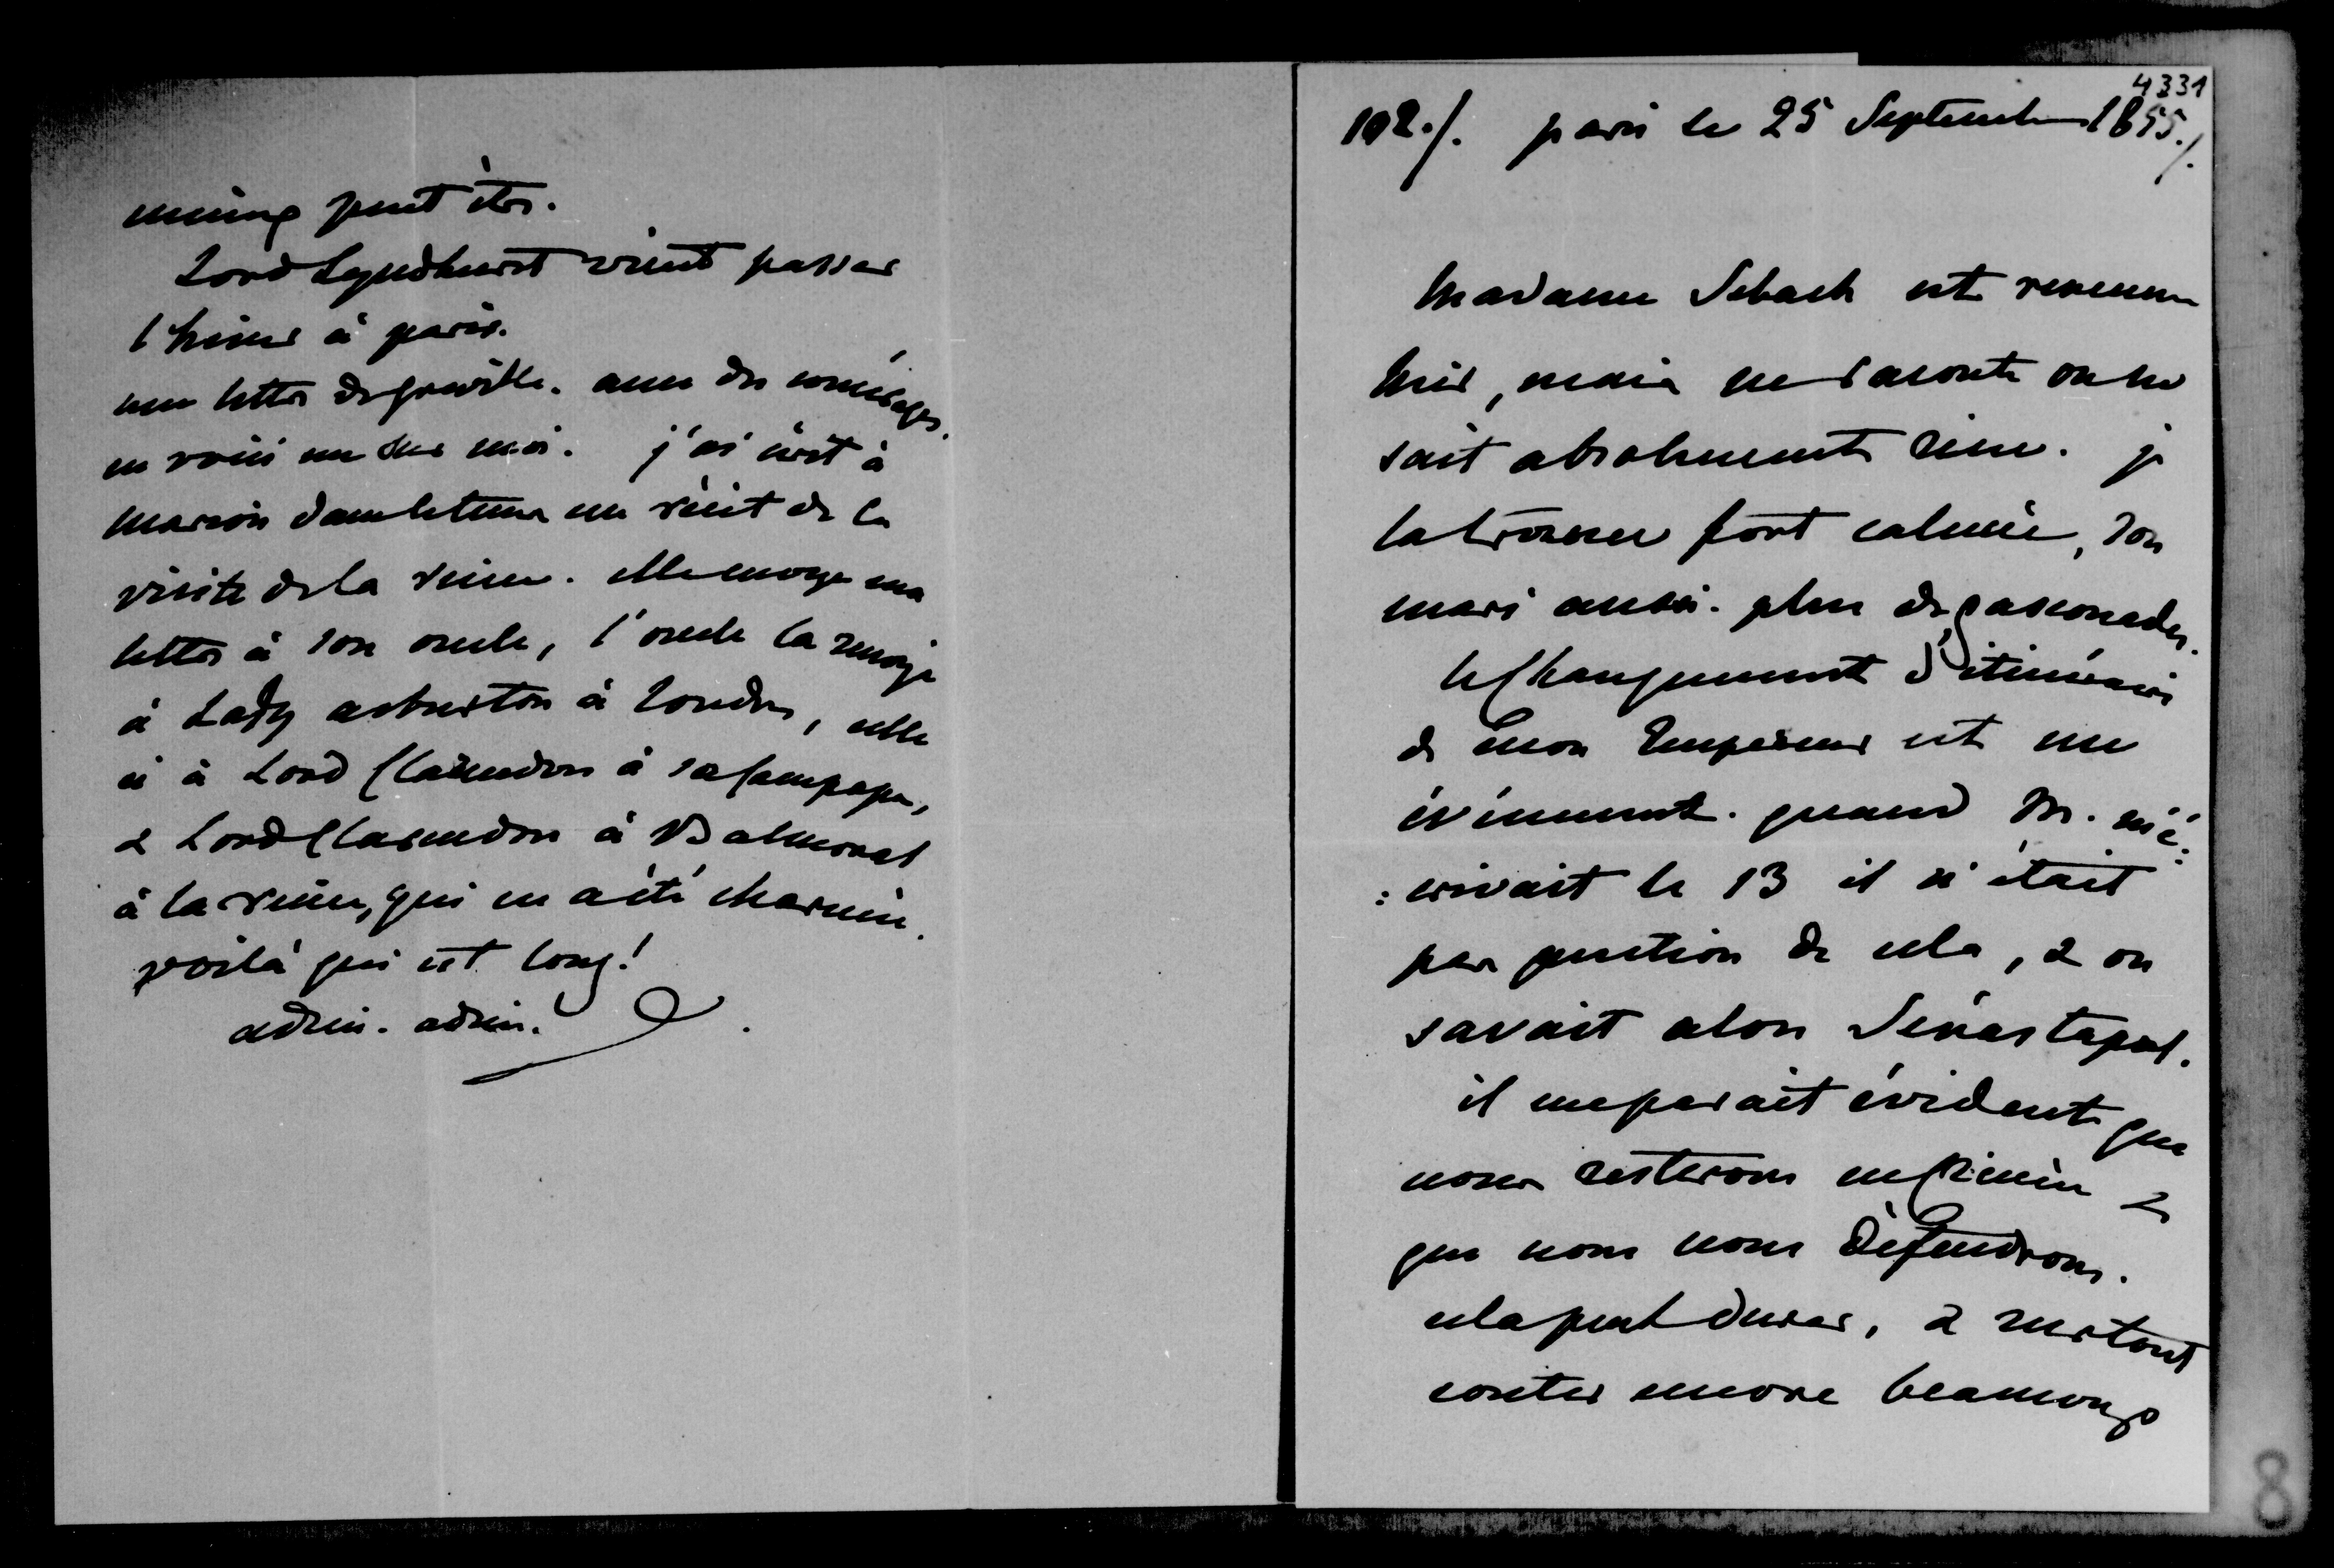 mieux peut être.
Lord Lyndhurst vient passer
l'hiver à paris.
une lettre de greville. avec des comérages.
en voici un sur moi. j'ai écrit à
marion dans le tems un récit de la
visite de la reine. elle envoye ma
lettre à son oncle, l'oncle la renvoye
à Lady asburton à Londres, celle
ci à Lord Clarendon à sa campagne,
& Lord Clarendon à Balmoral
à la reine, qui en a été charmée.
voilà qui est long!
adieu. adieu.
4331
102./. paris le 25 Septembre 1855./.
Madame Sebach est revenue
hier, mais ne raconte ou ne
sait absolument rien. je
la trouve fort calmée, son
mari aussi. plus de gasconades.
le changement d'itinéraire
de mon Empereur est un
événement. quand M. m'é:
:crivait le 13 il n'était
pas question de cela, & on
savait alors Sévastopol.
il me parait évident que
nous resterons en Crimée &
que nous nous défendrons.
cela peut durer, & surtout
couter encore beaucoup
8